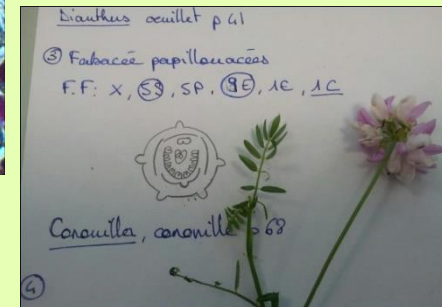 Dianthus oeuillet p 41
③ Fabacée papillonacées
F.F: X, (5S), 5P, (9E), 1E, 1C
Coronilla, coronille p 68
④